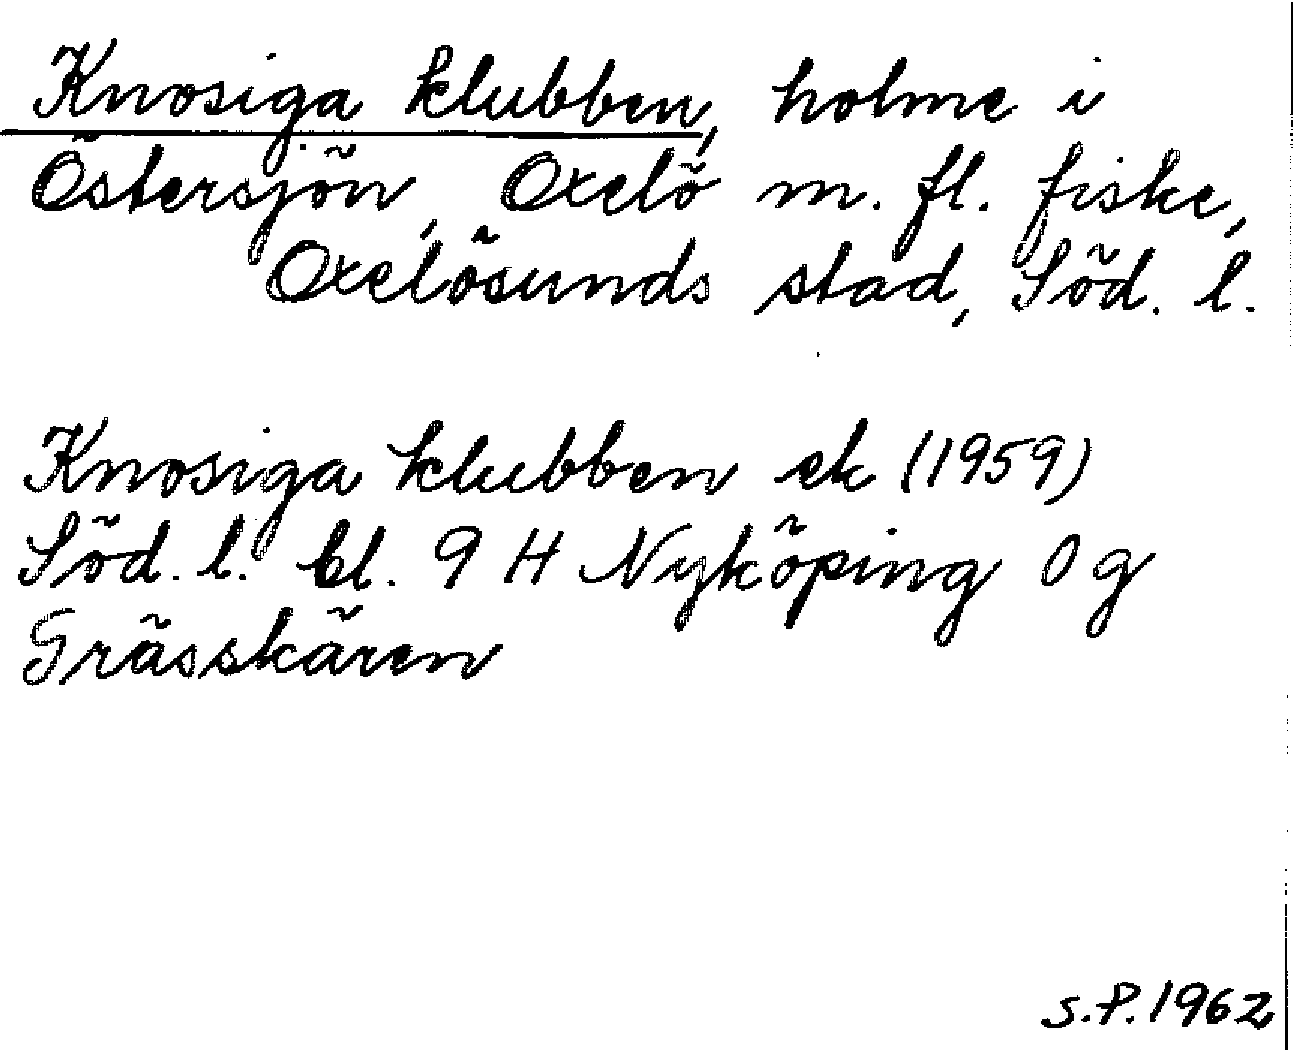 Knosiga klubben, holme i
Östersjön, Oxelö m. fl. fiske,
Oxelösunds stad, Söd. l.
Knosiga klubben ek (1959)
Söd. l. bl. 9 H Nyköping 0 g
Grässkären
S.P. 1962